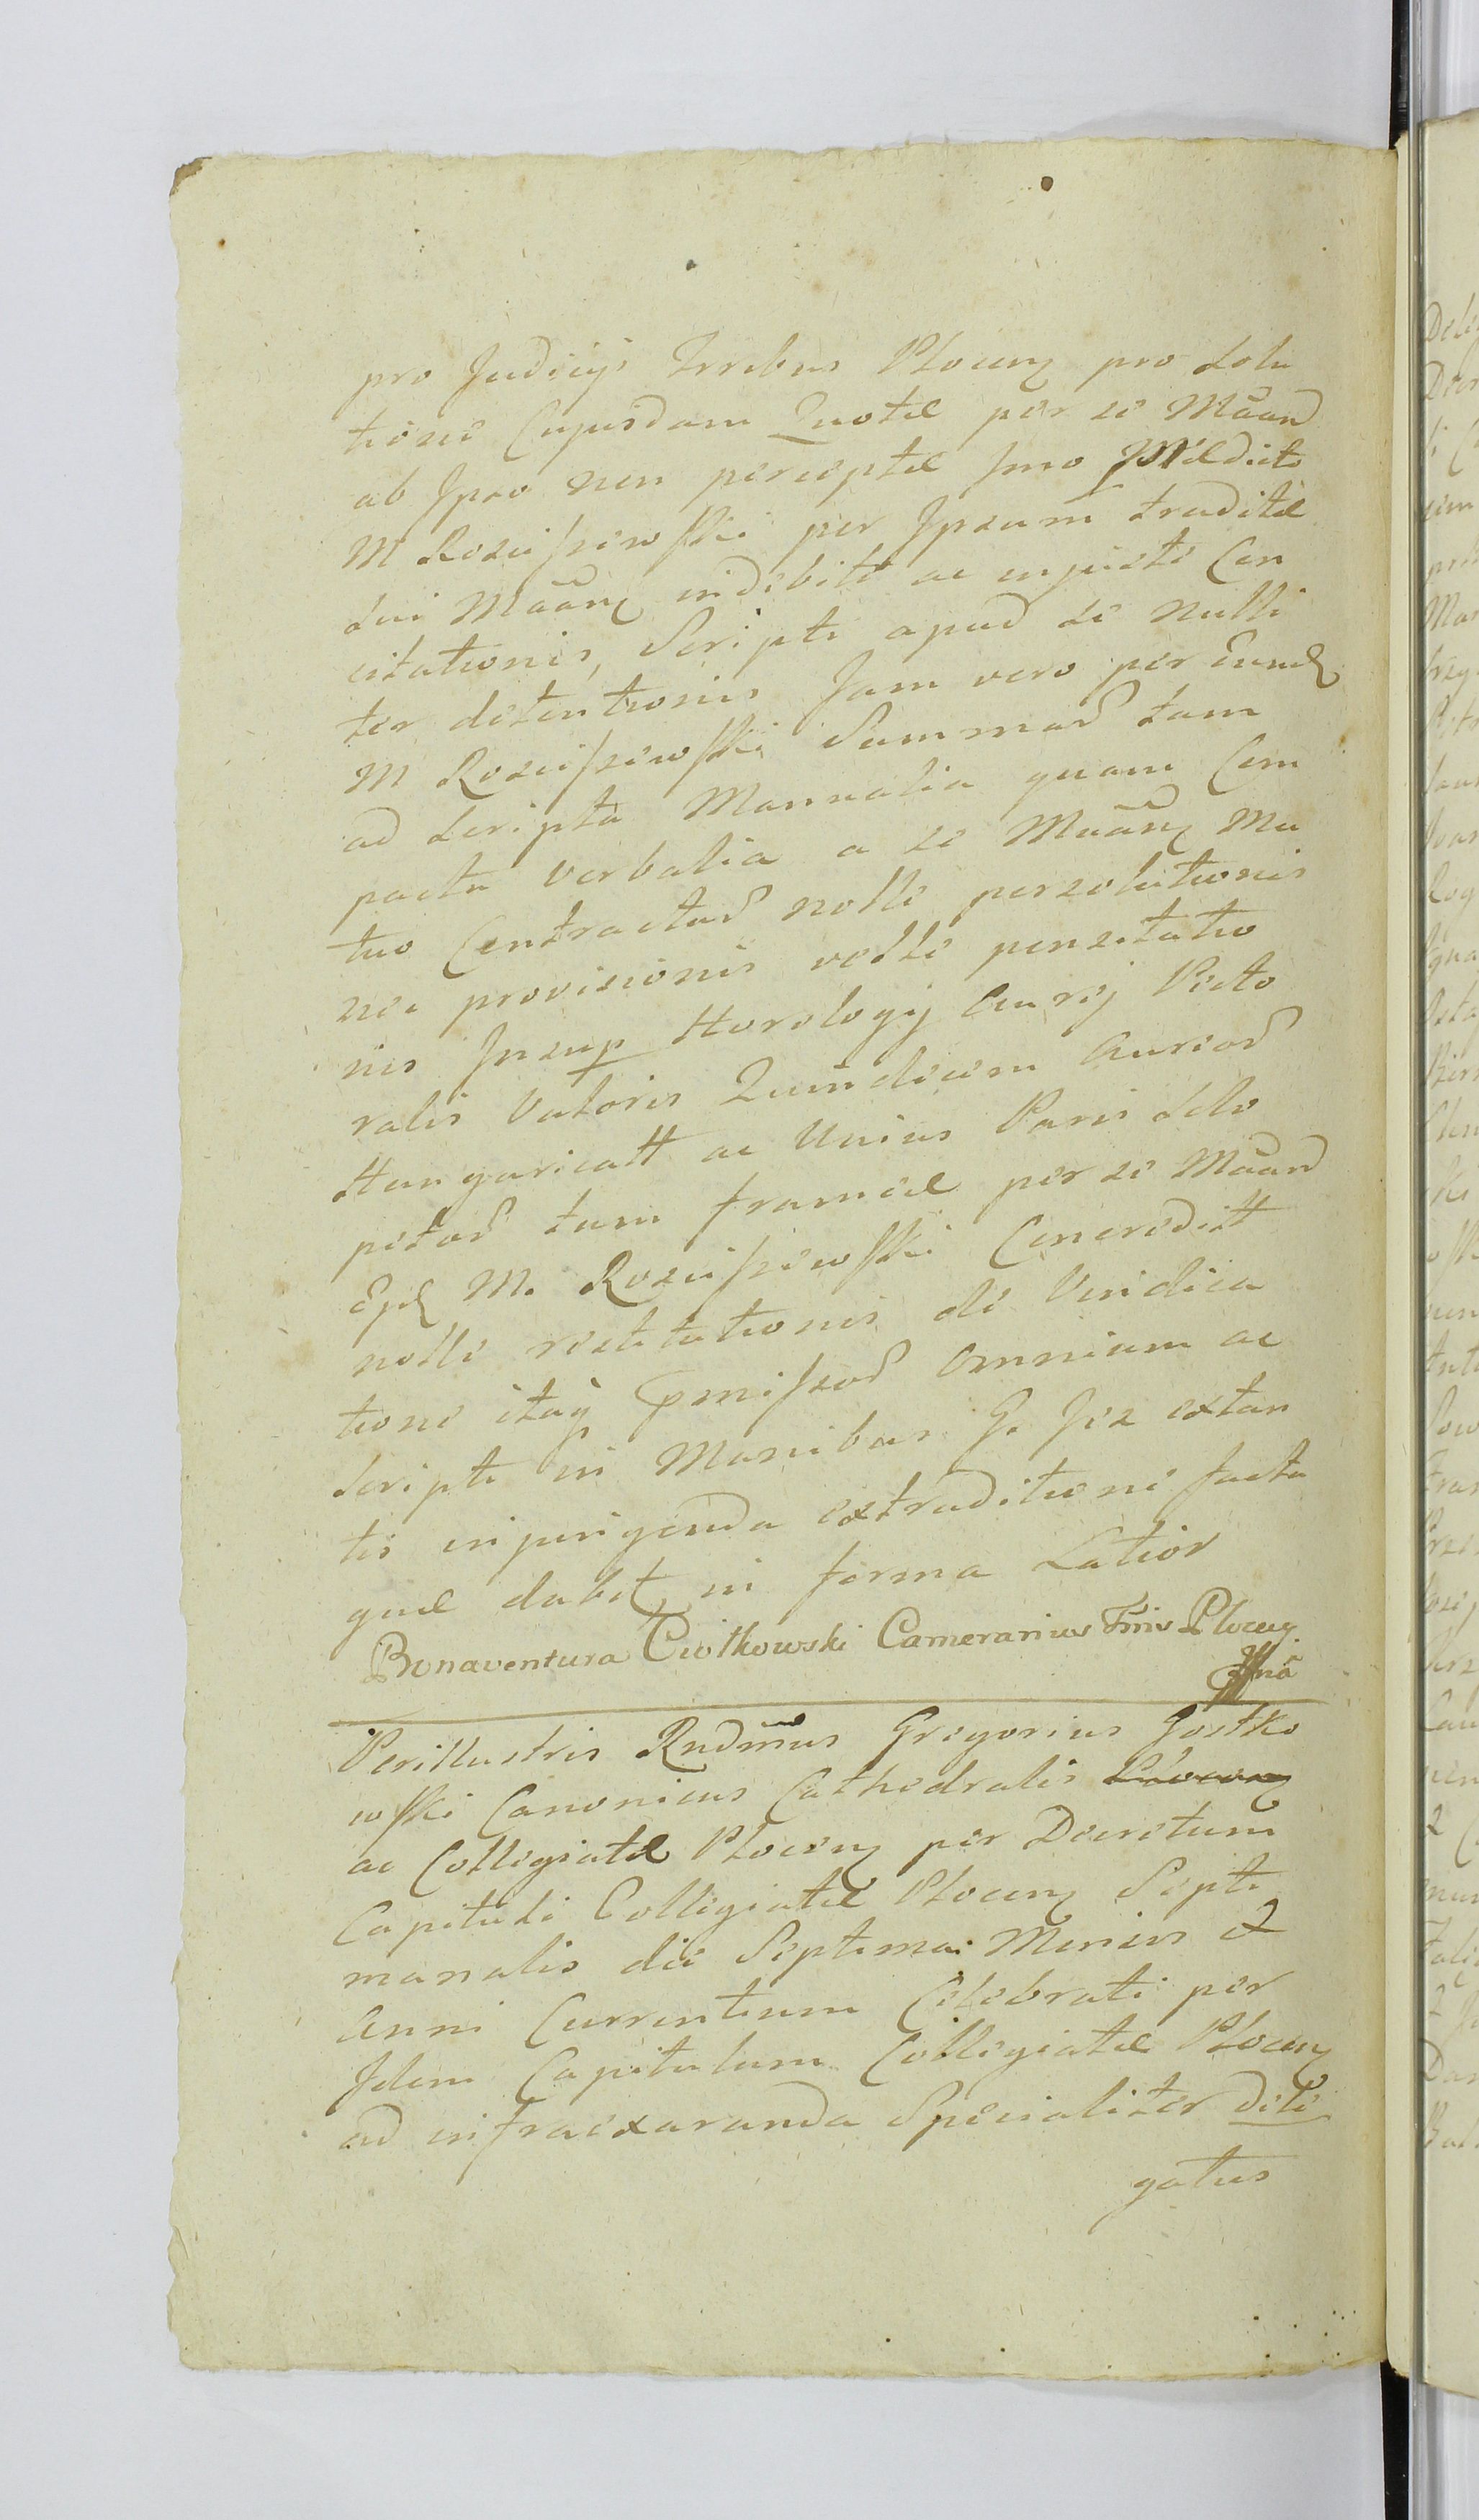 pro Judicijs Trribus Plocen pro Solu
tione Cujusdam Quotæ per se Māand
ab Ipso non perceptæ Imo
M Rosciszewski per Ipsum traditæ
sui Māan indebite ac injuste Con
citationis, Scripti apud se nulli
ter detentionis Jam vero per Eund
M Rosciszewski Summar tam
ad Scripta Manualia quam Com
pacta verbalia a se Māan Mu
tuo Contractar nolle persolutionis
nec provisionis velle pensitatio
nis Insup Horologij Aurej Pecto
ralis Valoris Quindecem Aureor
Hungaricall ac Unius Paris Sclo
petor tum frameæ per se Māand
M. Rosciszewski Concredit
nolle restitutionis de Veridica
tione itaq pmissor Omnium ac
Scripti in Manibus G. extan
tis injungenda extraditione facta
quæ dabit in forma Latior
Bonaventura Ciołkowski Camerarius Trris Plocen
Perillustris Rndmus Gregorius Gostko
wski Canonicus Cathedralis Plocen
ac Collegiatæ Plocen per Decretum
Capituli Collegiatæ Plocen Septi
manalis die Septima Mensis &
Anni Currentium Celebrati per
Idem Capitulum Collegiatæ Plocen
ad infraexaranda Specialiter dele
gatus